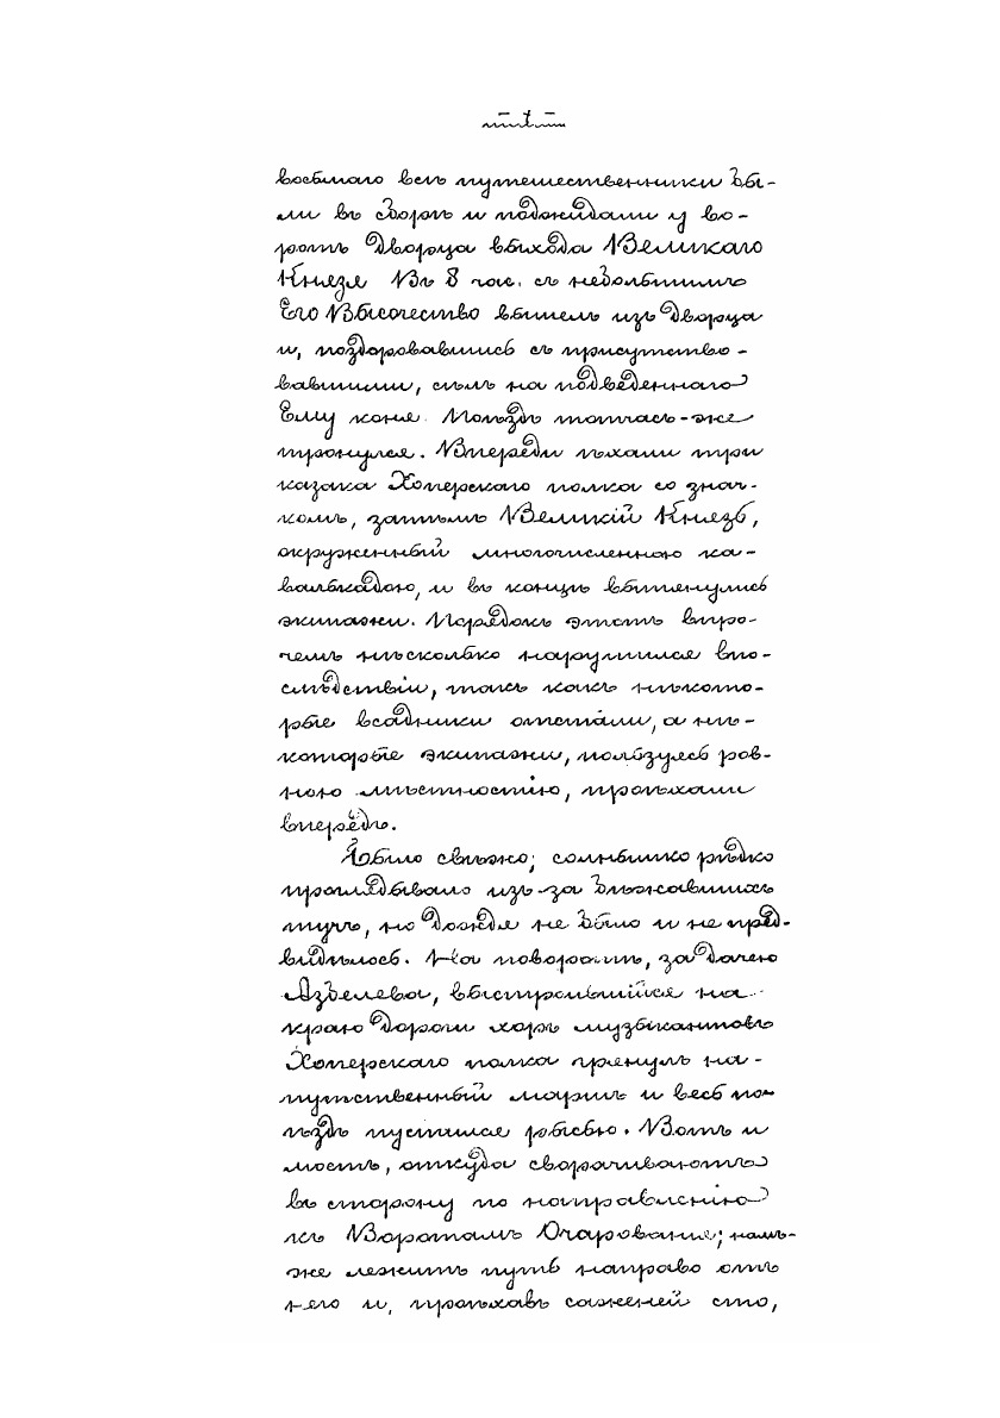 восьмаго всѣ путешественники бы-
ли въ сборѣ и поджидали у во-
ротъ Дворца выхода Великаго
Князя Въ 8 час. съ небольшимъ
Его Высочество вышелъ изъ Дворца
и, поздоровавшись съ присутство-
вавшими, сѣлъ на подведеннаго
Ему коня. Поѣздъ тотчасъ-же
тронулся. Впереди ѣхали три
казака Хоперскаго полка со знач-
комъ, затѣмъ Великій Князь,
окруженный многочисленною ка-
валькадою, и въ концѣ вытянулись
экипажи. Порядокъ этотъ впро-
чемъ нѣсколько нарушился впо-
слѣдствіи, такъ какъ нѣкото-
рые всадники отстали, а нѣ-
которые экипажи, пользуясь ров-
ною мѣстностію, проѣхали
впередъ.
Было свѣжо; солнышко рѣдко
проглядывало изъ-за бѣжавшихъ
тучъ, но дождя не было и не пред-
видѣлось. На поворотѣ, за дачею
Азбелева, выстроившійся на
краю дороги хоръ музыкантовъ
Хоперскаго полка грянулъ на-
путственный маршъ и весь по-
ѣздъ пустился рысью. Вотъ и
мостъ, откуда сворачиваютъ
въ сторону по направленію
къ Воротамъ Очарованія; намъ-
же лежитъ путь направо отъ
него и, проѣхавъ саженей сто,